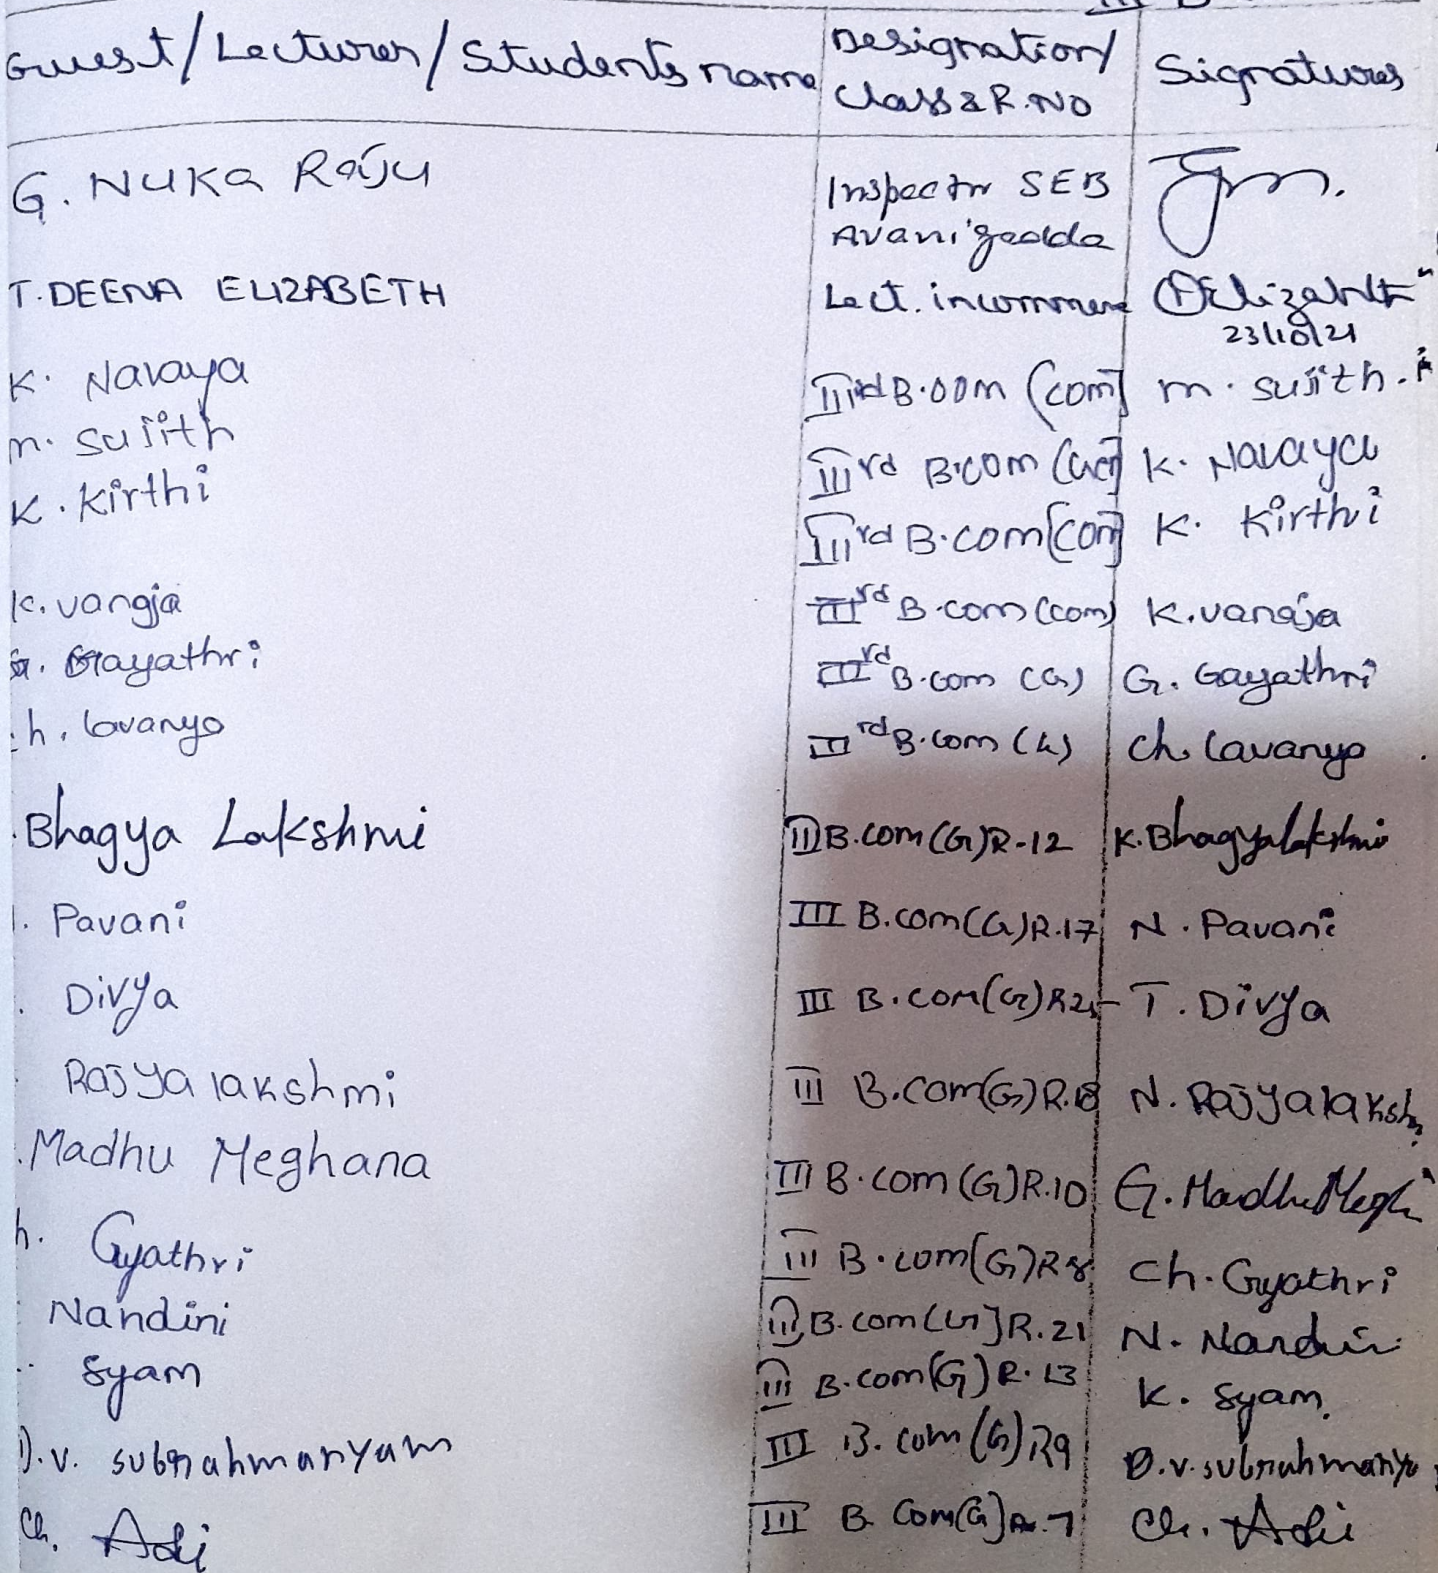 Guest/Lecturer/Students name Designation/ Class & R.NO Signatures
G. Nuka Raju Inspector SEB Avanigadda
T. DEENA ELIZABETH Lect. in commerce Elizabeth
23/10/21
K. Navaya IIIrd B.com (com) m. sujith.
m. sujith IIIrd B.com K. Navaya
K. Kirthi IIIrd B.com (com) K. Kirthi
K. vanaja IIIrd B.com (com) K. vanaja
G. Gayathri IIIrd B.com (G) G. Gayathri
ch. lavanya IIIrd B.com (G) ch. lavanya
Bhagya Lakshmi III B.com (G) R-12 K. Bhagyalakshmi
Pavani III B.com (G) R.17 N. Pavani
Divya III B.com (G) T. Divya
Rajyalakshmi III B.com (G) R.18 N. Rajyalakshm
Madhu Meghana III B.com (G) R.10 G. Madhu Megh
h. Gyathri III B.com (G) R8 Ch. Gyathri
Nandini III B.com (G) R.21 N. Nandini
Syam III B.com (G) R.13 K. Syam.
D.v. subrahmanyam III B.com (G) R9 D.v. subrahmanya
Ch. Adi III B.Com (G) R.7 Ch. Adi